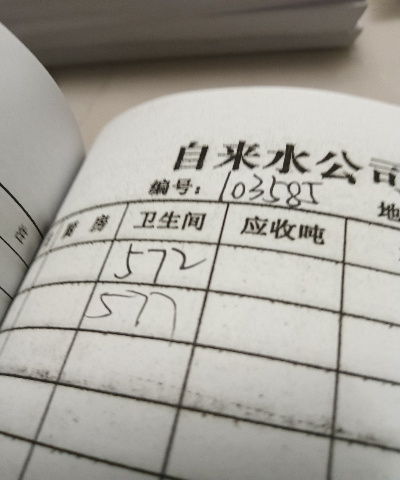 自来水公司
编号: 103585 地
厨房 卫生间 应收吨
572
577